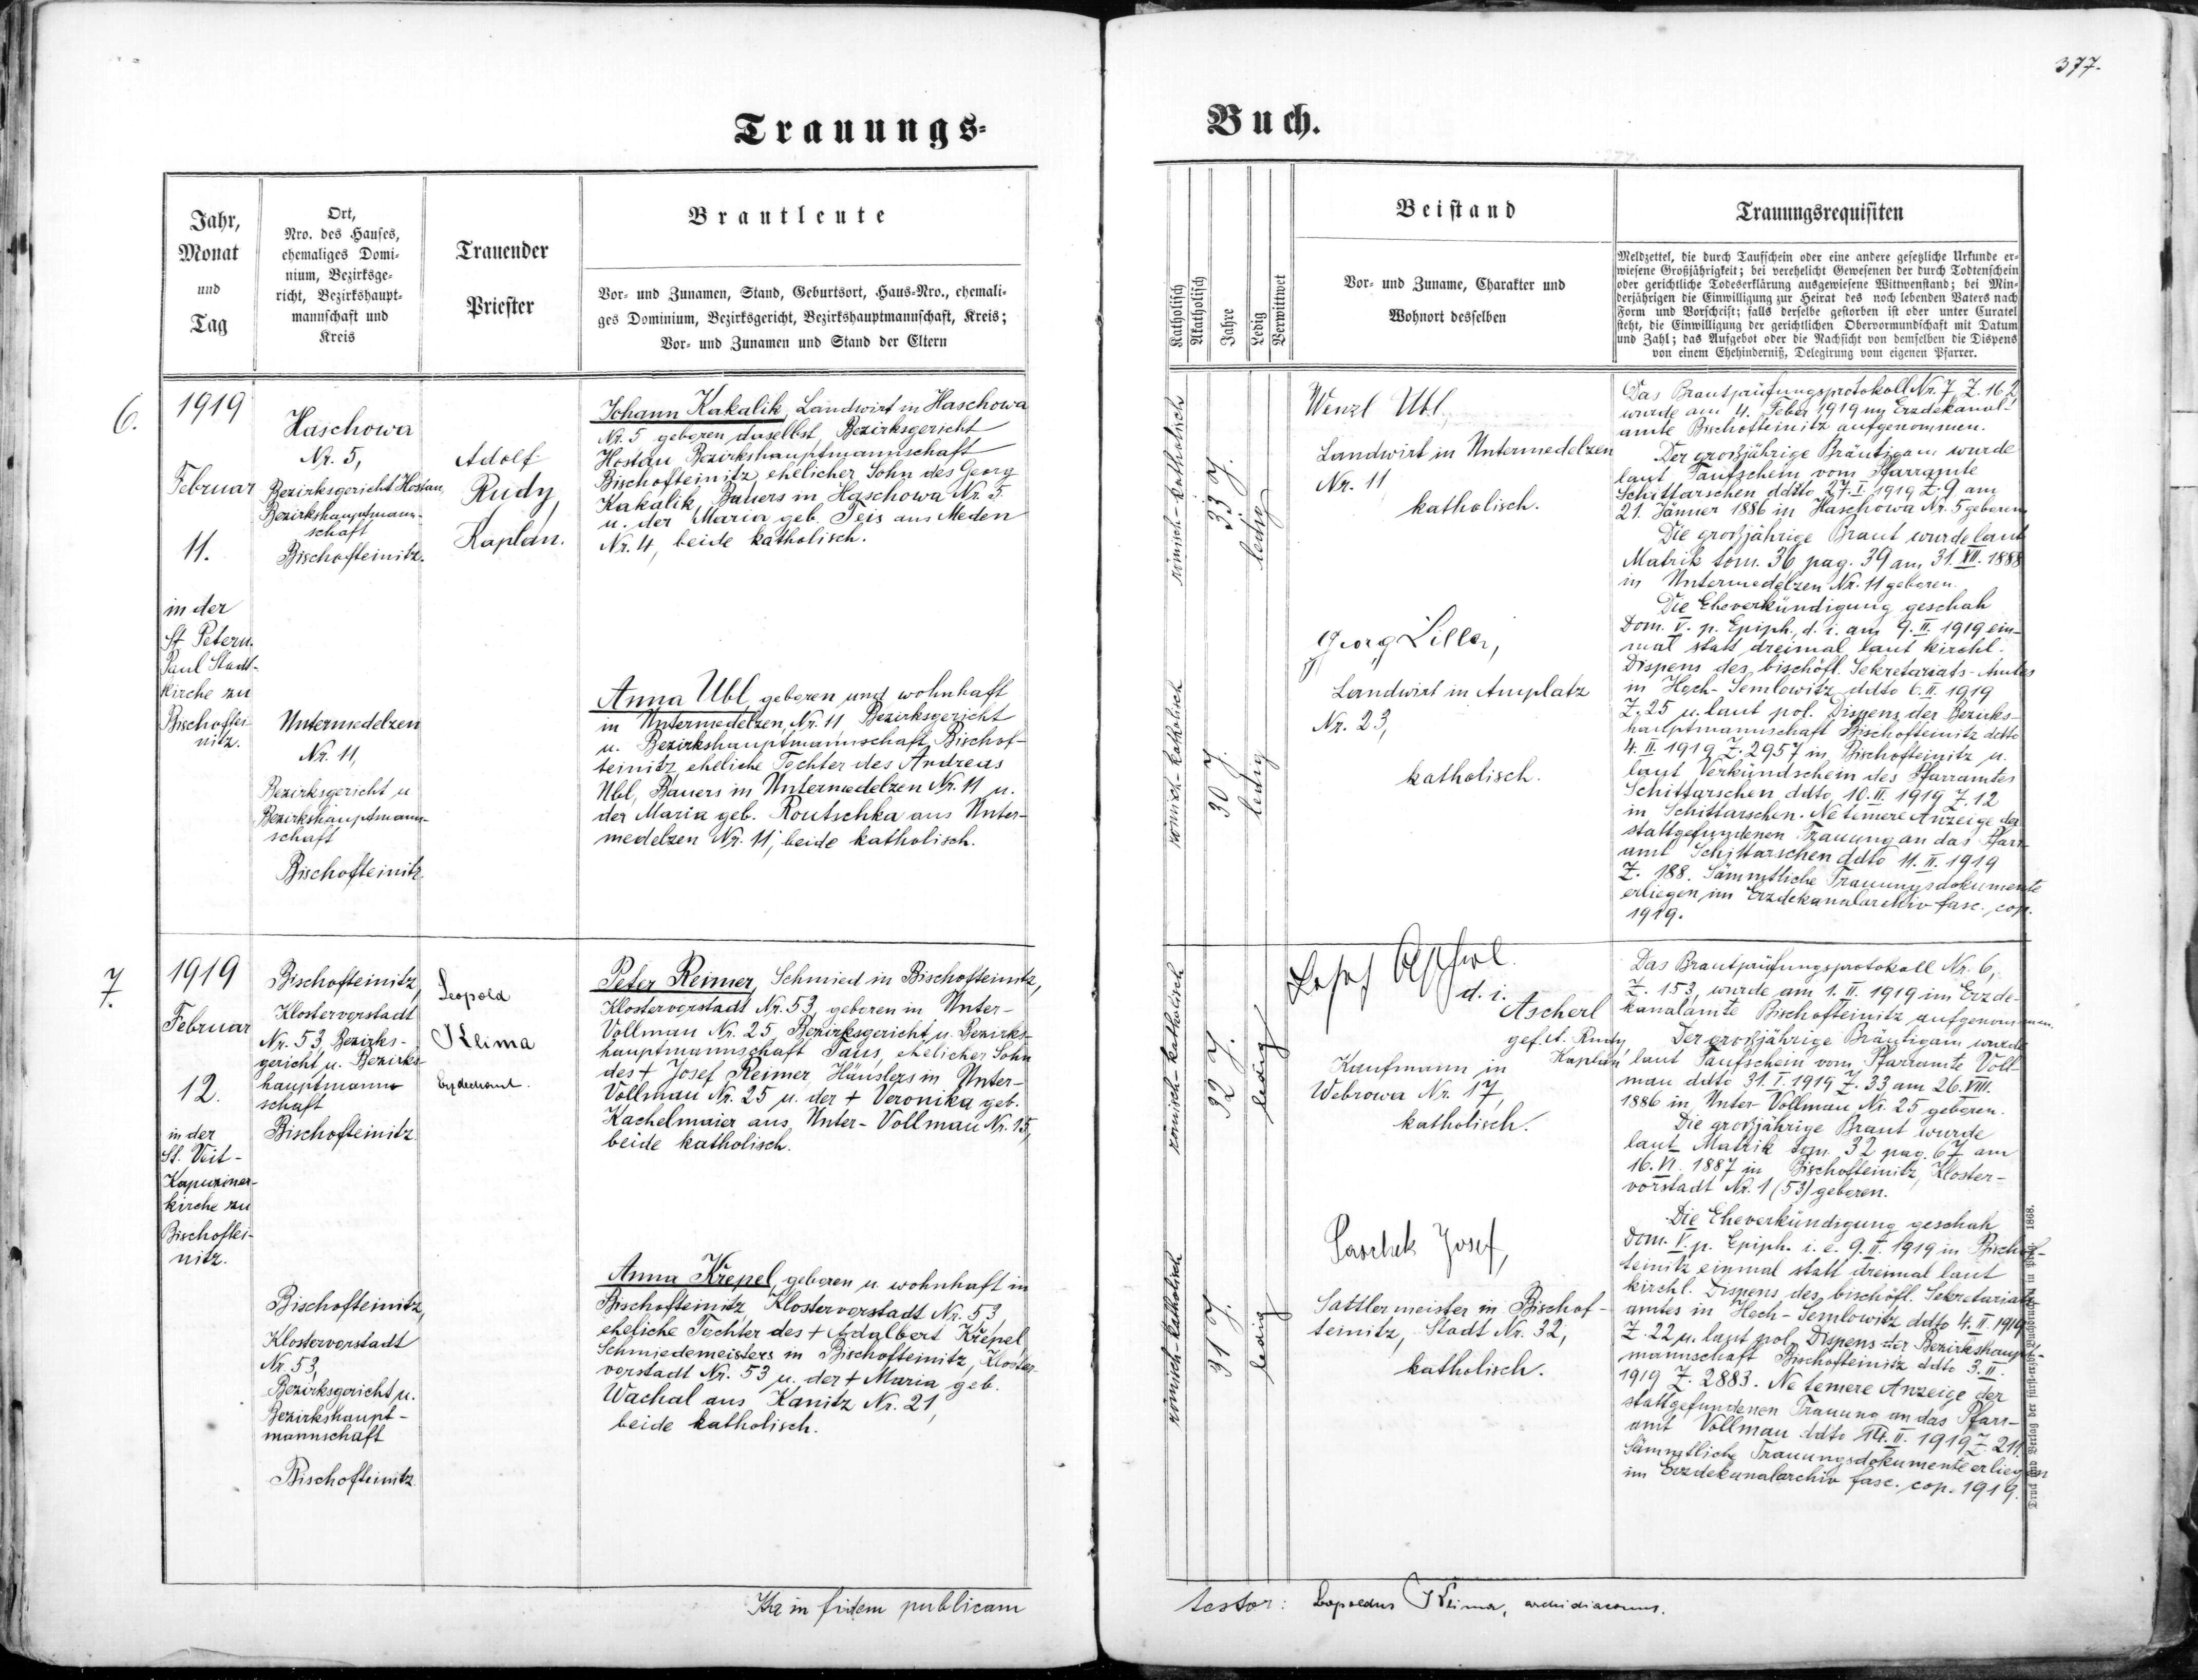 377.
Trauungs-
Buch.
Jahr,
Monat
und
Tag
Ort,
Nro. des Hauses,
ehemaliges Domi-
nium, Bezirksge-
richt, Bezirkshaupt-
mannschaft und
Kreis
Trauender
Priester
Brautleute
Vor- und Zunamen, Stand, Geburtsort, Haus-Nro., ehemali-
ges Dominium, Bezirksgericht, Bezirkshauptmannschaft, Kreis;
Vor- und Zunamen und Stand der Eltern
Katholisch
Akatholisch
Jahre
Ledig
Verwittwet
Beistand
Vor- und Zuname, Charakter und
Wohnort desselben
Trauungsrequisiten
Meldzettel, die durch Taufschein oder eine andere gesetzliche Urkunde er-
wiesene Großjährigkeit; bei verehelicht Gewesenen der durch Todtenschein
oder gerichtliche Todeserklärung ausgewiesene Wittwenstand; bei Min-
derjährigen die Einwilligung zur Heirat des noch lebenden Vaters nach
Form und Vorschrift; falls derselbe gestorben ist oder unter Curatel
steht, die Einwilligung der gerichtlichen Obervormundschaft mit Datum
und Zahl; das Aufgebot oder die Nachsicht von demselben die Dispens
von einem Ehehinderniß, Delegirung vom eigenen Pfarrer.
6.
1919
Februar
11.
in der
St. Peter u.
Paul Stadt-
kirche zu
Bischoftei-
nitz.
Haschowa
Nr. 5,
Bezirksgericht Hostau,
Bezirkshauptmann-
schaft
Bischofteinitz.
Untermedelzen
Nr. 11,
Bezirksgericht u
Bezirkshauptmann-
schaft
Bischofteinitz.
Adolf
Rudy,
Kaplan.
Johann Kakalik, Landwirt in Haschowa
Nr. 5 geboren daselbst, Bezirksgericht
Hostau Bezirkshauptmannschaft
Bischofteinitz, ehelicher Sohn des Georg
Kakalik, Bauers in Haschowa Nr. 5
u. der Maria geb. Teis aus Meden
Nr. 4, beide katholisch.
Anna Ubl, geboren und wohnhaft
in Untermedelzen, Nr. 11, Bezirksgericht
u. Bezirkshauptmannschaft Bischof-
teinitz, eheliche Tochter des Andreas
Ubl, Bauers in Untermedelzen Nr. 11 u.
der Maria geb. Routschka aus Unter-
medelzen Nr. 11, beide katholisch.
römisch-katholisch
33 J.
ledig
römisch-katholisch
30 J.
ledig
Wenzl Ubl,
Landwirt in Untermedelzen
Nr. 11
katholisch.
Georg Liller,
Landwirt in Amplatz
Nr. 23,
katholisch.
Das Brautprüfungsprotokoll Nr. 7 Z. 162
wurde am 4. Feber 1919 im Erzdekanal-
amte Bischofteinitz aufgenommen.
Der großjährige Bräutigam wurde
laut Taufschein vom Pfarramte
Schittarschen ddto 27. I. 1919 Z. 9 am
21. Jänner 1886 in Haschowa Nr. 5 geboren
Die großjährige Braut wurde laut
Matrik tom. 36 pag. 39 am 31. XII. 1888
in Untermedelzen Nr. 11 geboren.
Die Eheverkündigung geschah
Dom. V. p. Epiph., d. i. am 9. II. 1919 ein-
mal statt dreimal laut kirchl.
Dispens des bischöfl. Sekretariats-Amtes
in Hoch-Semlowitz ddto 6. II. 1919
Z. 25 u. laut pol. Dispens der Bezirks-
hauptmannschaft Bischofteinitz ddto
4. II. 1919 Z. 2957 in Bischofteinitz u.
laut Verkündschein des Pfarramtes
Schittarschen ddto 10. II. 1919 Z. 12
in Schittarschen. Ne temere Anzeige der
stattgefundenen Trauung an das Pfarr-
amt Schittarschen ddto 11. II. 1919
Z. 188. Sämmtliche Trauungsdokumente
erliegen im Erzdekanalarchiv fasc. cop.
1919.
7.
1919
Februar
12.
in der
St. Veit-
Kapuziner-
kirche zu
Bischoftei-
nitz.
Bischofteinitz,
Klostervorstadt
Nr. 53, Bezirks-
gericht u. Bezirks-
hauptmann-
schaft
Bischofteinitz.
Bischofteinitz,
Klostervorstadt
Nr. 53,
Bezirksgericht u.
Bezirkshaupt-
mannschaft
Bischofteinitz.
Leopold
Klima
Erzdechant.
Peter Reimer, Schmied in Bischofteinitz,
Klostervorstadt Nr. 53, geboren in Unter-
Vollmau Nr. 25 Bezirksgericht u. Bezirks-
hauptmannschaft Taus, ehelicher Sohn
des + Josef Reimer, Häuslers in Unter-
Vollmau Nr. 25 u. der + Veronika geb.
Kachelmaier aus Unter-Vollmau Nr. 15,
beide katholisch.
Anna Křepel, geboren u. wohnhaft in
Bischofteinitz Klostervorstadt Nr. 53,
eheliche Tochter des + Adalbert Křepel,
Schmiedemeisters in Bischofteinitz, Kloster-
vorstadt Nr. 53 u. der + Maria geb.
Wachal aus Kanitz Nr. 21,
beide katholisch.
römisch-katholisch
32 J.
ledig
römisch-katholisch
31 J.
ledig
Josef Ascherl.
d. i.
Ascherl
gef. A. Rudy
Kaplan
Kaufmann in
Webrowa Nr. 17,
katholisch.
Paschek Josef,
Sattlermeister in Bischof-
teinitz, Stadt Nr. 32,
katholisch.
Das Brautprüfungsprotokoll Nr. 6,
Z. 153, wurde am 1. II. 1919 im Erzde-
kanalamte Bischofteinitz aufgenommen.
Der großjährige Bräutigam wurde
laut Taufschein vom Pfarramte Voll-
mau ddto 31. I. 1919 Z. 33 am 26. VIII.
1886 in Unter-Vollmau Nr. 25 geboren.
Die großjährige Braut wurde
laut Matrik tom. 32 pag. 67 am
16. VI. 1887 in Bischofteinitz, Kloster-
vorstadt Nr. 1 (53) geboren.
Die Eheverkündigung geschah
Dom. V. p. Epiph. i. e. 9. II. 1919 in Bischof-
teinitz einmal statt dreimal laut
kirchl. Dispens des bischöfl. Sekretariats-
amtes in Hoch-Semlowitz ddto 4. II. 1919
Z. 22 u. laut pol. Dispens der Bezirkshaupt-
mannschaft Bischofteinitz ddto 3. II.
1919 Z. 2883. Ne temere Anzeige der
stattgefundenen Trauung an das Pfarr-
amt Vollmau ddto 14. II. 1919 Z. 211.
Sämmtliche Trauungsdokumente erliegen
im Erzdekanalarchiv fasc. cop. 1919.
in fidem publicam
testor: Leopoldus Klima, archidiaconus.